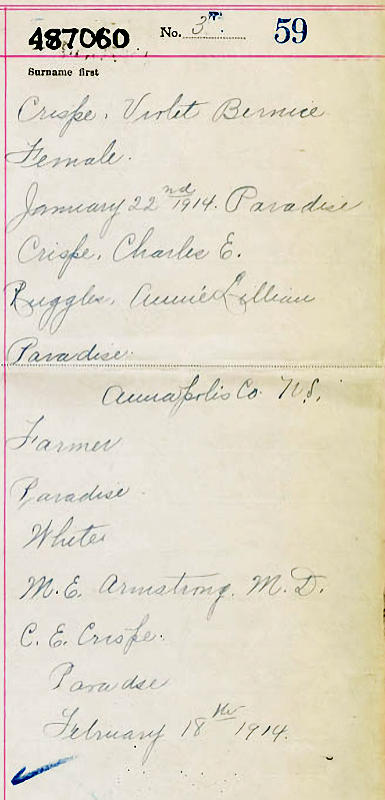 487060 No. 3 59
Surname first
Crispe, Violet Bernice
Female.
January 22nd 1914. Paradise
Crispe, Charles E.
Ruggles, Annie Lillian
Paradise.
Annapolis Co. N.S.
Farmer
Paradise.
White
M. E. Armstrong. M. D.
C. E. Crispe.
Paradse
February 18th 1914.